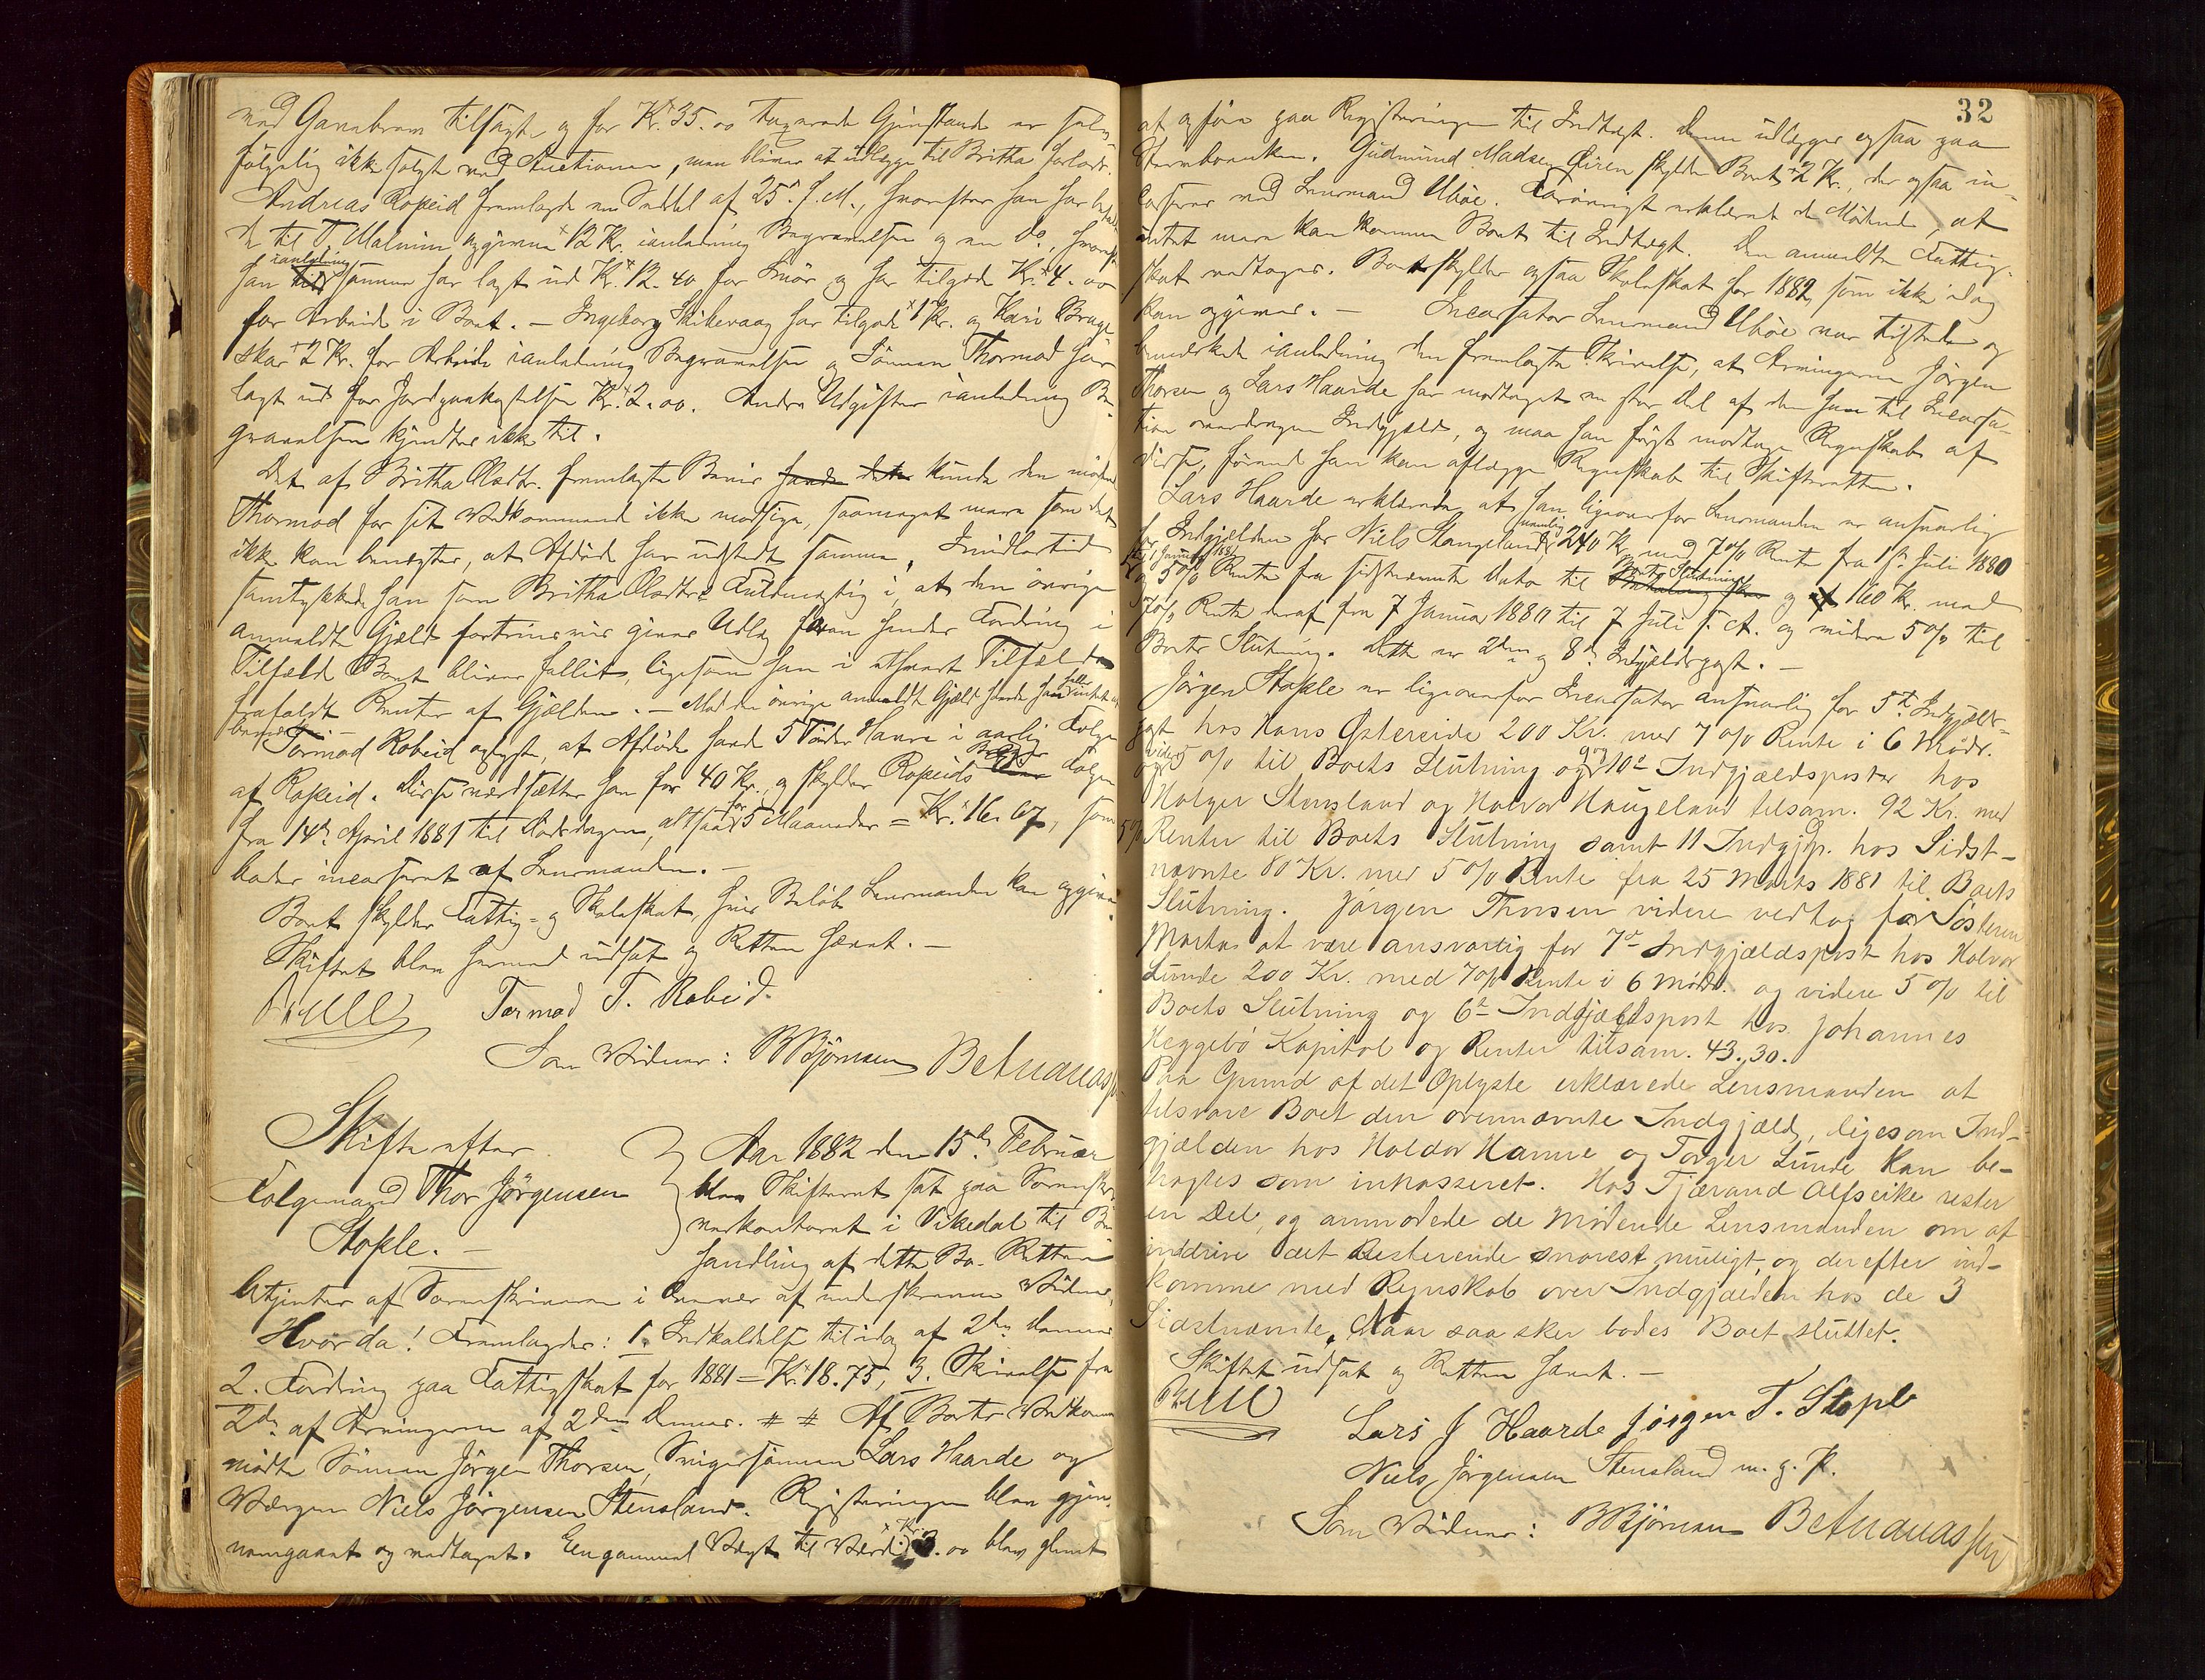 med Garnebrom tilsagte og for Kr. 35.00 taxerede Gjenstande er saaledes
følgelig ikke solgt ved Auctionen, men bliver at udlægge til Britha forlods.
Andreas Ropeid fremlagde en Seddel af 25de f. M., hvorefter han har betalt
til T. Malmin 12 Kr. ianledning Begravelsen og en do., hvorefter
han ianledning samme har lagt ud Kr. 12.40 for Smør og har tilgode Kr. 4.00
for Arbeide i Boet. – Ingeborg Skibevaag har tilgode 1 Kr. og Kari Brage
skar 2 Kr. for Arbeide ianledning Begravelsen og Sønnen Thormod har
lagt ud for Jordpaakastelsen Kr. 2.00. Andre Udgifter ianledning Be-
gravelsen kjendtes ikke til.
Det af Britha Olsdtr. fremlagte Bevis kunde den mødende
Thormod for sit Vedkommende ikke modsige, saameget mere som det
ikke kan benegtes, at Afdøde har udstedt samme. Imidlertid
samtykkede han som Britha Olsdtrs Fuldmægtig i, at den øvrige
anmeldte Gjæld fortrinsvis gives Udlæg foran hendes Fordring i
Tilfælde Boet bliver fallit, ligesom han i ethvert Tilfælde
frafaldt Renter af Gjælden. – Mod den øvrige anmeldte Gjæld havde han heller intet at
bemærke. –
Tormod Robeid oplyste, at Afdøde havde 5 Tønder Havre i aarlig Folge
af Ropeid. Disse værdsætter han for 40 Kr., og skylder Ropeids Bruger Folgen
fra 14de April 1881 til Dødsdagen, altsaa for 5 Maaneder = Kr. 16.67, som
bedes incasseret af Lensmanden. –
Boet skylder Fattig- og Skoleskat, hvis Beløb Lensmanden kan opgive.
Skiftet blev hermed udsat og Retten hævet. –
Tormod T. Robeid.
Som Vidner: BBjörnsen BeAnanassen
Skifte efter
Folgemand Thor Jörgensen
Stople. –
Aar 1882 den 15de Februar
blev Skifteret sat paa Sorenskri-
verkontoret i Vikedal til Be-
handling af dette Bo. Retten
betjentes af Sorenskriveren i Overvær af underskrevne Vidner.
Hvorda! Fremlagdes: 1. Indkaldelse til idag af 2den dennes
2. Fordring paa Fattigskat for 1881 = Kr. 18.75, 3. Skrivelse fra
2de af Arvingerne af 2den dennes. # # Af Boets Vedkommende
mødte Sønnen Jörgen Thorsen, Svigersønnen Lars Haarde og
Værgen Niels Jörgensen Stensland. Registeringen blev gjen-
nemgaaet og vedtaget. En gammel Vægt til Værdi Kr. 3.00 blev glemt
32
at opføre paa Registeringen til Indtægt. Denne udlægges ogsaa paa
Stervboenken. Gudmund Madsen Øiren skylder Boet 2 Kr., der ogsaa in-
casseres ved Lensmand Ubøe. Forøvrigt erklærede de Mødende, at
intet mere kan komme Boet til Indtægt. Den anmeldte Fattig-
skat vedtages. Boet skylder ogsaa Skoleskat for 1882, som ikke idag
kan opgives. – Incassator Lensmand Ubøe var tilstede og
bemærkede ianledning den fremlagte Skrivelse, at Arvingerne Jörgen
Thorsen og Lars Haarde har modtaget en stor Del af den ham til Incassa-
tion overdragne Indgjæld, og maa han først modtage Regnskab af
disse, førend han kan aflægge Regnskab til Skifteretten.
Lars Haarde erklærede, at han ligeoverfor Lensmanden er ansvarlig
for Indgjælden hos Niels Stangeland, nemlig 240 Kr. med 7% Rente fra 1ste Juli 1880
til 1 Januar 1881
og 5% Rente fra sidstnævnte Dato til Boets Slutning og 160 Kr. med
7% Rente deraf fra 7 Januar 1880 til 7 Juli f. A. og videre 5% til
Boets Slutning. Dette er 2den og 8de Indgjældspost. –
Jörgen Stople er ligeoverfor Incassator ansvarlig for 5te Indgjælds-
post hos Hans Østereide 200 Kr. med 7% Rente i 6 Mdr.
og videre 5% til Boets Slutning og 9de og 10de Indgjældsposter hos
Holger Stensland og Halvor Haugeland tilsam. 92 Kr. med
5% Renter til Boets Slutning samt 11 Indgjdp. hos Sidst-
nævnte 80 Kr. med 5% Rente fra 25 Marts 1881 til Boets
Slutning. Jörgen Thorsen videre vedtog for Søsteren
Marta at være ansvarlig for 7de Indgjældspost hos Halvor
Lunde 200 Kr. med 7% Rente i 6 Mdr. og videre 5% til
Boets Slutning og 6te Indgjældspost hos Johannes
Heggebö Kapital og Renter tilsam. 43.30.
Paa Grund af det Oplyste erklærede Lensmanden at
tilsvare Boet den ovennævnte Indgjæld, ligesom Ind-
gjælden hos Haldor Hamre og Torger Lunde kan be-
tragtes som inkasseret. Hos Tjærand Alfseike rester
en Del, og anmodede de Mødende Lensmanden om at
inddrive det Resterende snarest muligt, og derefter ind-
komme med Regnskab over Indgjælden hos de 3
Sidstnævnte. Naar saa sker bedes Boet sluttet.
Skiftet udsat og Retten hævet. –
Lars J Haarde Jörgen T. Stople
Niels Jörgensen Stensland m. p. P.
Som Vidner: BBjörnsen BeAnanassen